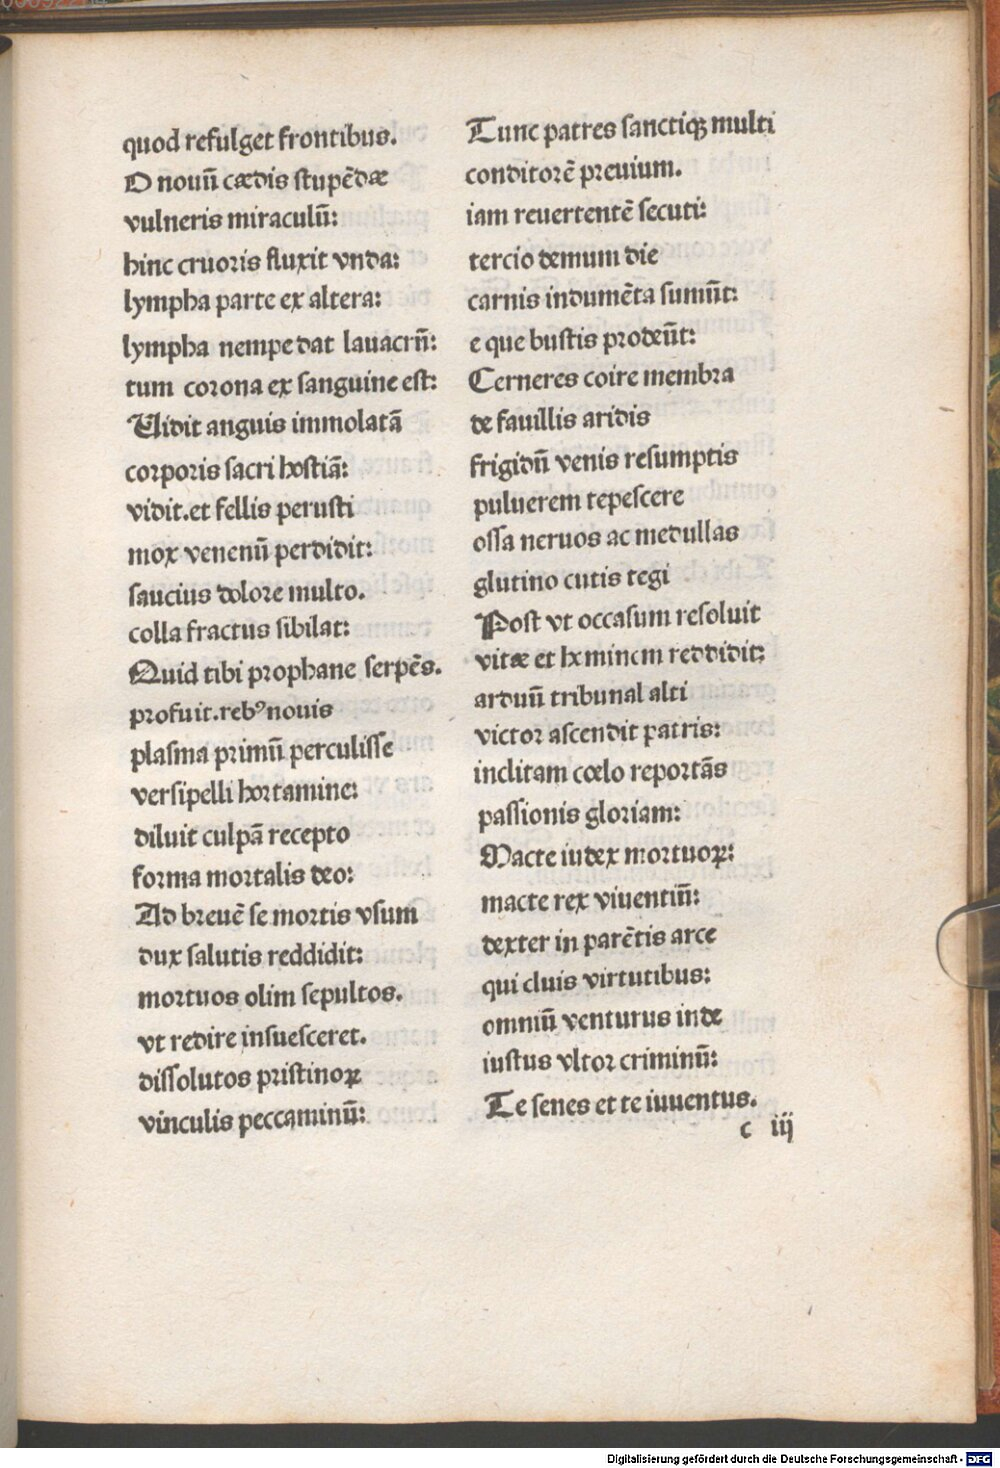 quod refulget frontibus.
O nouū cædis stupēdæ
vulneris miraculū:
hinc cruoris fluxit vnda:
lympha parte ex altera:
lympha nempe dat lauacrū:
tum corona ex sanguine est:
Uidit anguis immolatā
corporis sacri hostiā:
vidit.et fellis perusti
mox venenū perdidit:
saucius dolore multo.
colla fractus sibilat:
Quid tibi prophane serpēs.
profuit.rebꝰ nouis
plasma primū perculisse
versipelli hortamine:
diluit culpā recepto
forma mortalis deo:
Ad breuē se mortis vsum
dux salutis reddidit:
mortuos olim sepultos.
vt redire insuesceret.
dissolutos pristinoꝝ
vinculis peccaminū:
Tunc patres sanctiqꝫ multi
conditorē preuium.
iam reuertentē secuti:
tercio demum die
carnis indumēta sumūt:
e que bustis prodeūt:
Cerneres coire membra
de fauillis aridis
frigidū venis resumptis
puluerem tepescere
ossa neruos ac medullas
glutino cutis tegi
Post vt occasum resoluit
vitæ et hominem reddidit:
arduū tribunal alti
victor ascendit patris:
inclitam cœlo reportās
passionis gloriam:
Macte iudex mortuoꝝ:
macte rex viuentiū:
dexter in parētis arce
qui cluis virtutibus:
omniū venturus inde
iustus vltor criminū:
Te senes et te iuuentus.
c iij
Digitalisierung gefördert durch die Deutsche Forschungsgemeinschaft - DFG